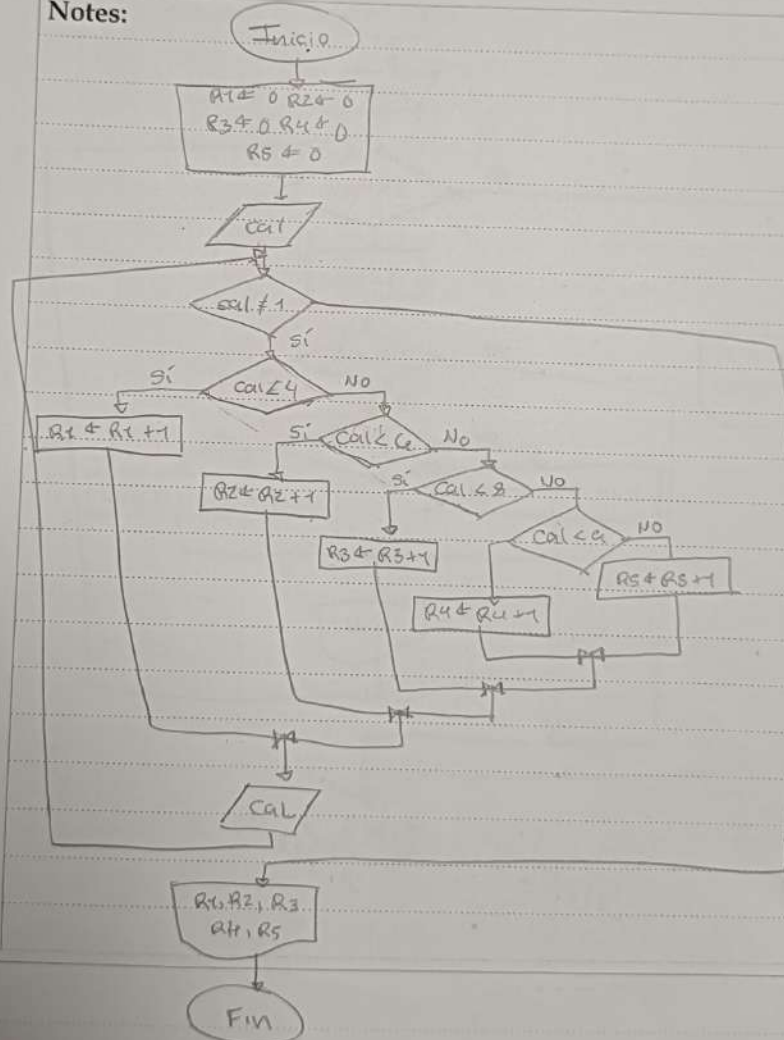 Notes:
Inicio
R1 ← 0 R2 ← 0
R3 ← 0 R4 ← 0
R5 ← 0
Cal
cal ≠ 1
Sí
Cal < 4
Sí
No
R1 ← R1 + 1
Cal < 6
Sí
No
R2 ← R2 + 1
Cal < 8
Sí
No
R3 ← R3 + 1
Cal < 9
No
R4 ← R4 + 1
R5 ← R5 + 1
Cal
R1, R2, R3
R4, R5
Fin